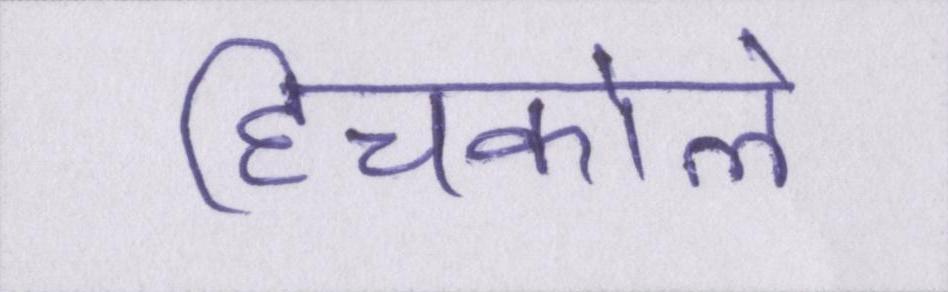 हिचकोले